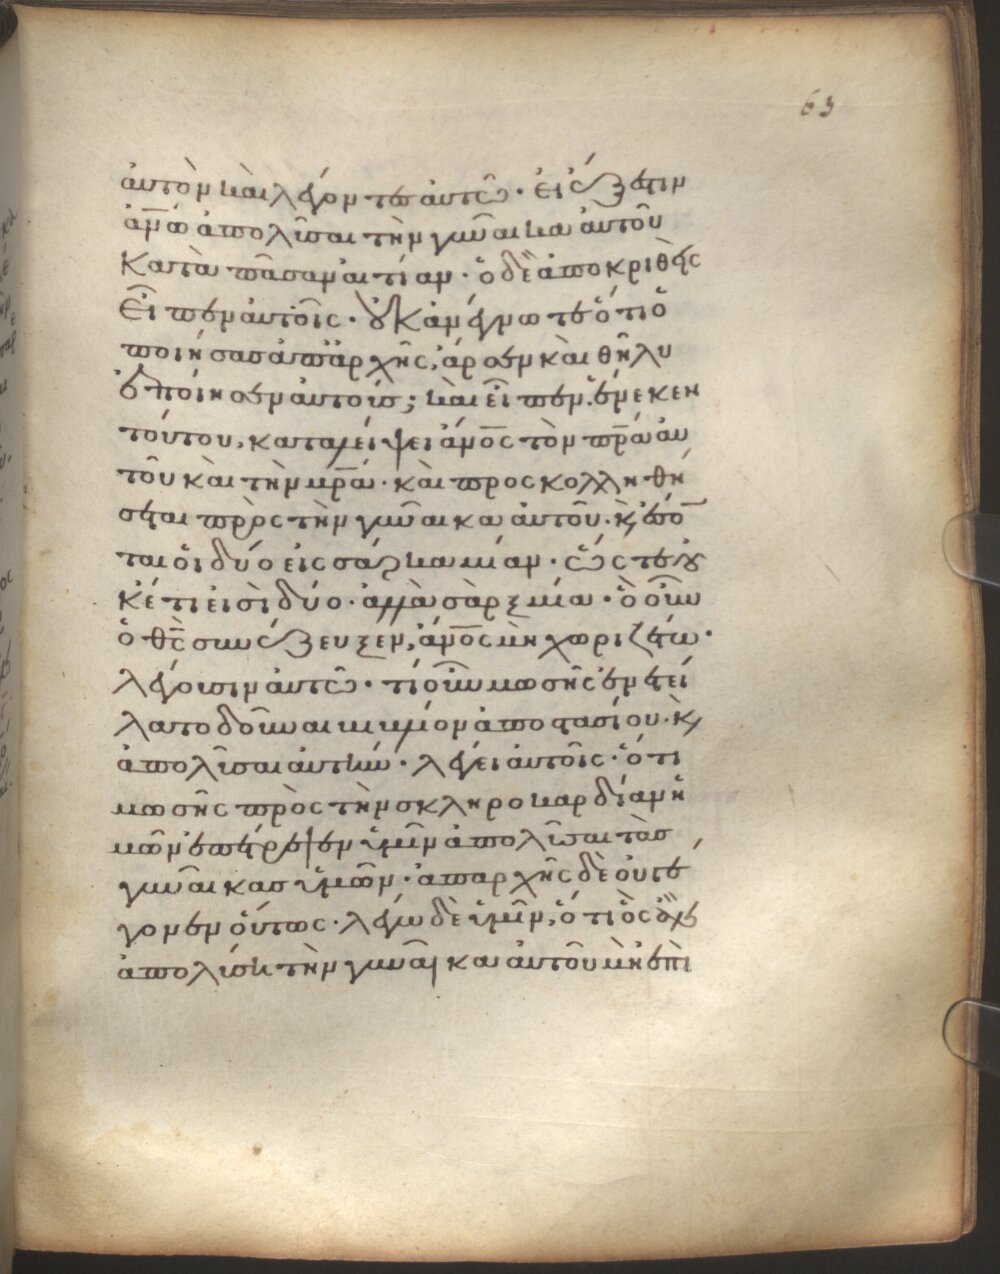 63
ἀυτὸν καὶ λέγοντες ἀυτῶ· ἐι ἔξεστιν
ἀν̅ω ἀπολῦσαι τὴν γυναῖκα ἀυτοῦ
κατὰ πᾶσαν ἀιτίαν· ὁ δὲ ἀποκριθεὶς
εἶπεν ἀυτοῖς· οὐκ ἀνέγνωτε ὅτι ὁ
ποιήσας ἀπἀρχῆς, ἄρσεν καὶ θῆλυ
ἐποίησεν ἀυτούς; καὶ εἶπεν. ἕνεκεν
τούτου, καταλείψει ἄνο̅ς τὸν πρ̅α ἀυ
τοῦ καὶ τὴν μρ̅α· καὶ προσκολληθή
σεται πρὸς τὴν γυναῖκα ἀυτοῦ. κ̀ ἔσον
ται ὁι δύο εἰς σάρκα μίαν· ὥστε οὐ
κέτι εἰσὶ δύο· ἀλλὰ σὰρξ μία· ὃ οὖν
ὁ θς̅ συνέζευξεν, ἄνο̅ς μὴ χωριζέτω·
λέγουσιν ἀυτῶ· τί οὖν μωσῆς ἐνετεί
λατο δοῦναι βιβλίον ἀποστασίου· κ̀
ἀπολῦσαι ἀυτήν· λέγει ἀυτοῖς· ὅτι
μωσῆς πρὸς τὴν σκληροκαρδίαν ἡ
μῶν ἐπέτρεψεν ὑμῖν ἀπολῦσαι τὰσ
γυναῖκασ ὑμῶν· ἀπαρχῆς δὲ οὐ γέ
γονεν ὅυτως· λέγω δὲ ὑμῖν, ὅτι ὃς ἂν
ἀπολύσῃ τὴν γυναῖκα ἀυτοῦ μὴ ἐπὶ